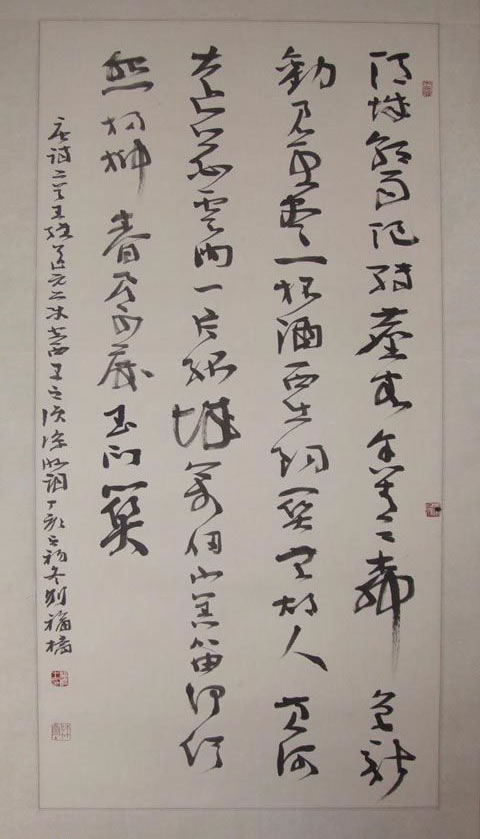 渭城朝雨浥輕塵客舍青青柳色新
勸君更盡一杯酒西出陽關無故人黄河
遠上白雲間一片孤城萬仞山羌笛何須
怨楊柳春風不度玉門關
唐詩二首王維送元二使安西王之渙涼州詞丁亥之初冬劉福